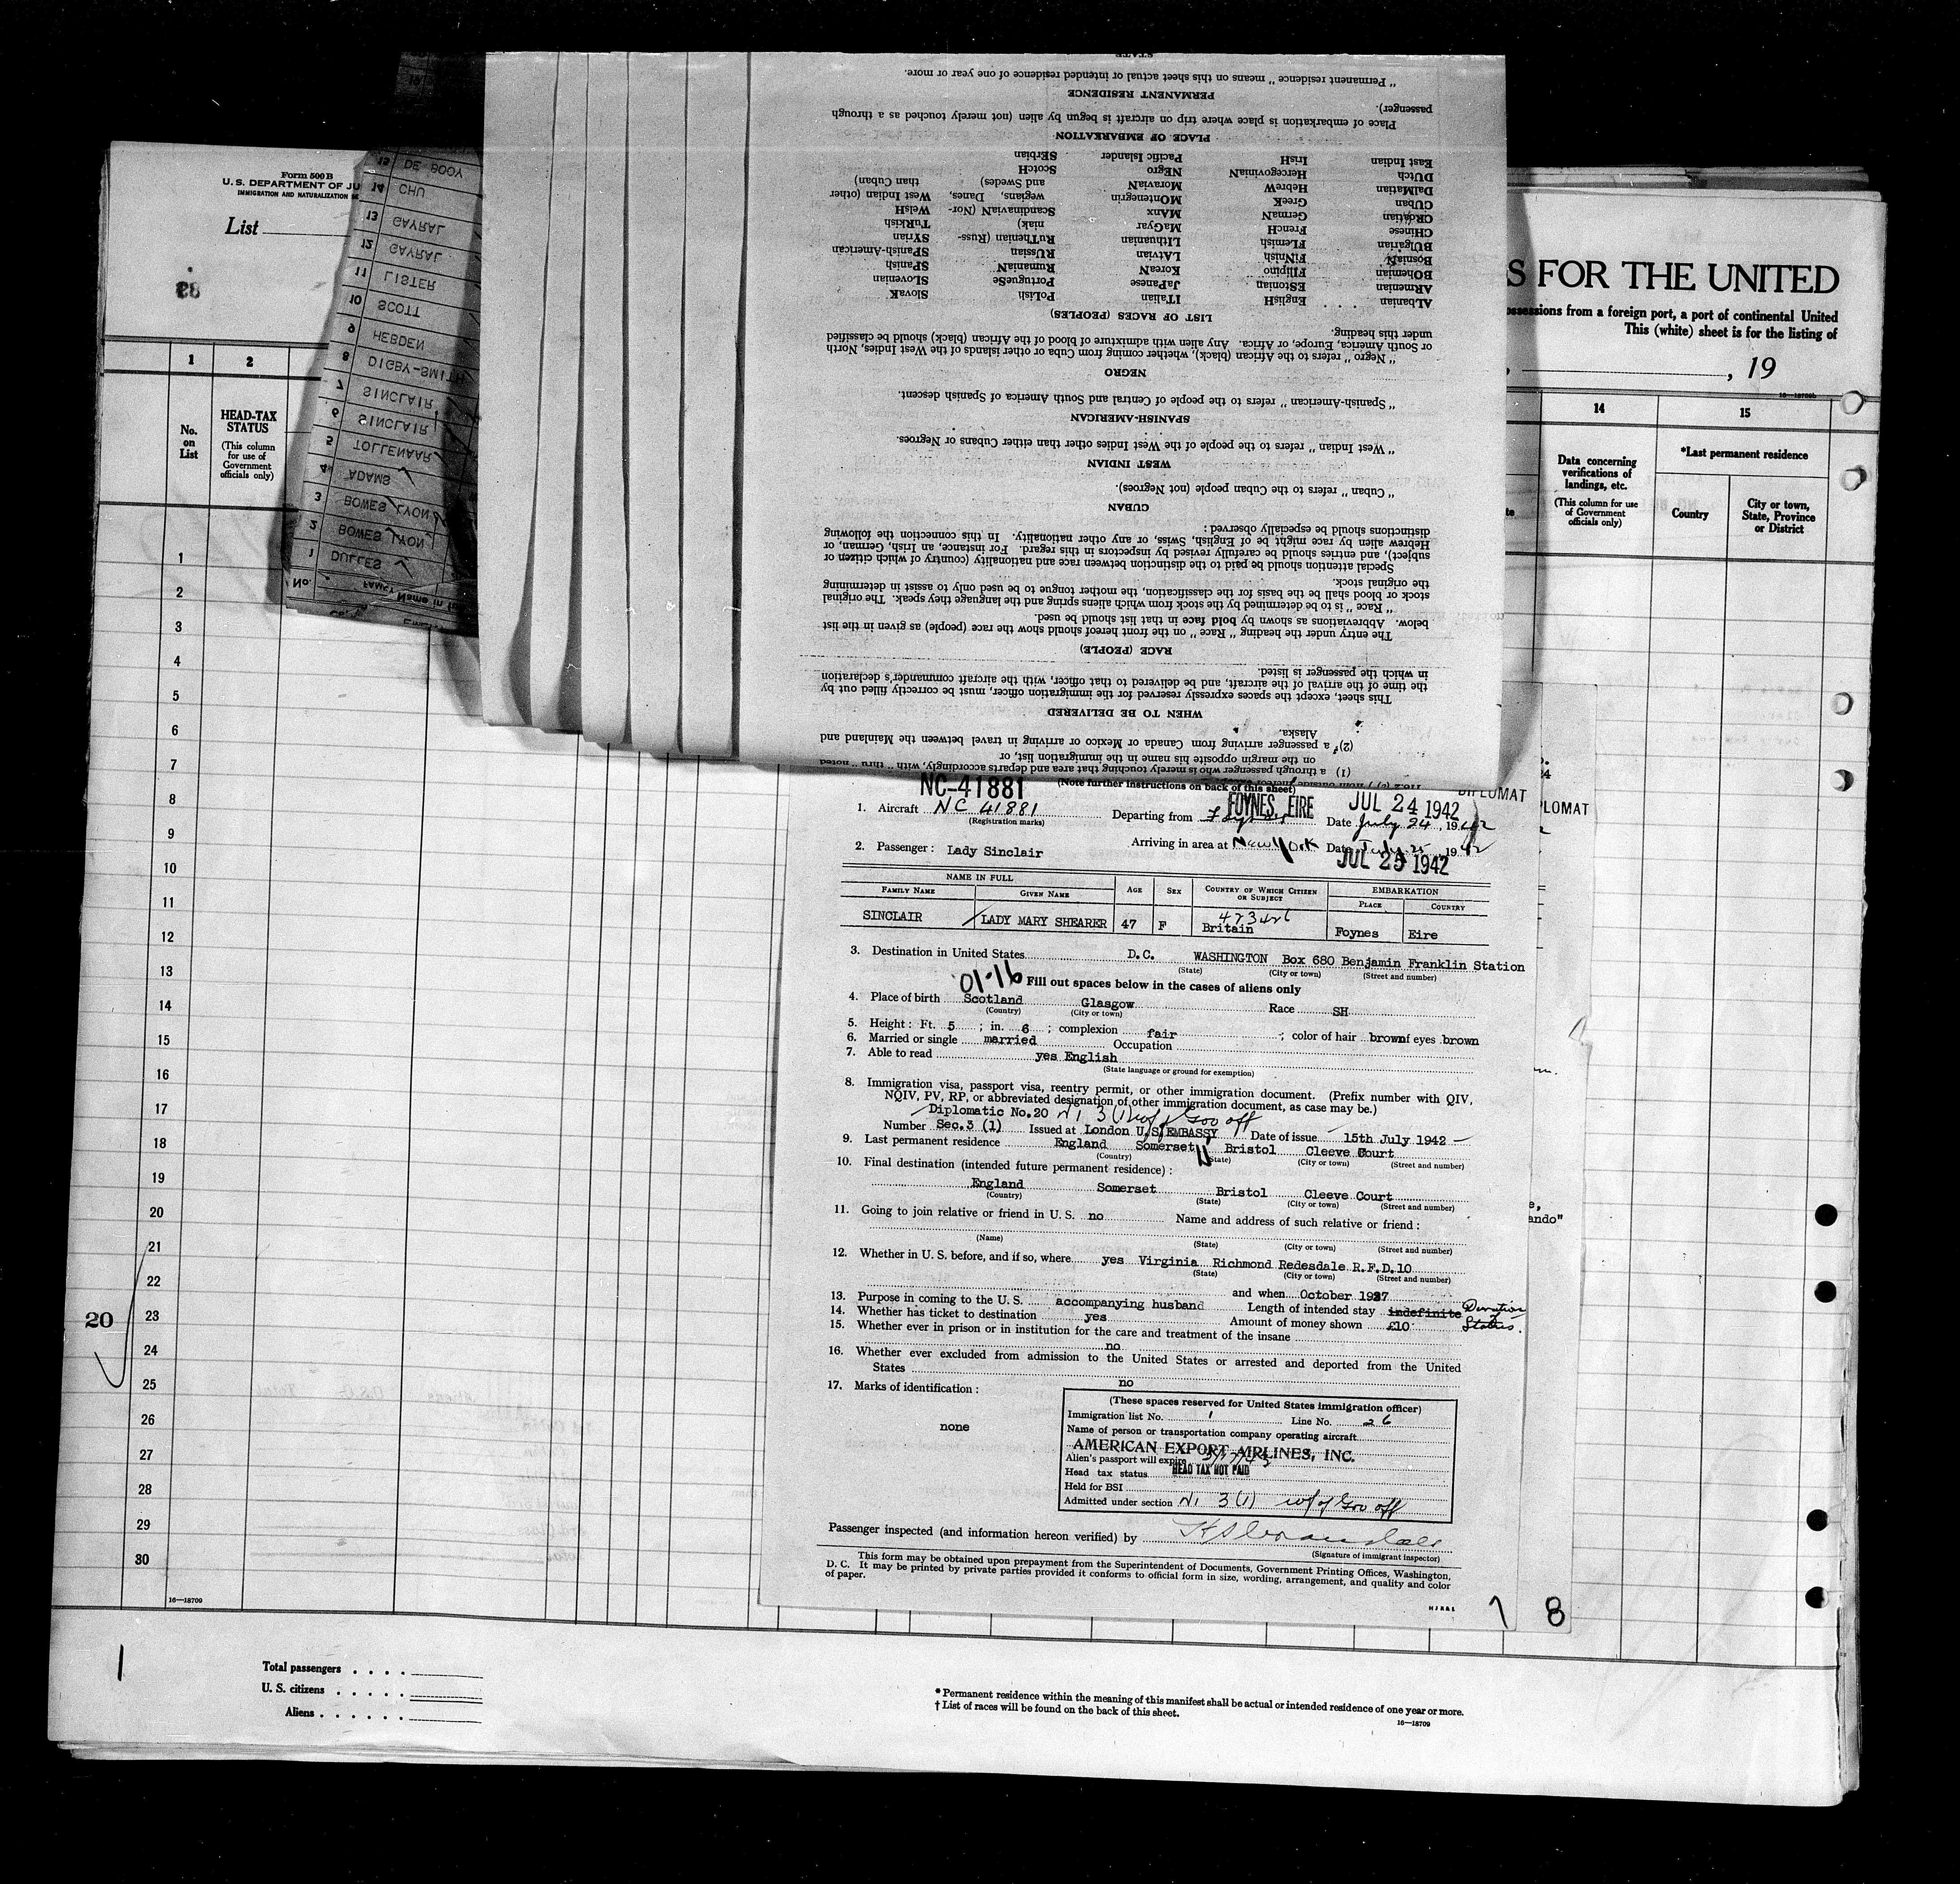 Form 500 B
U. S. DEPARTMENT OF JU
IMMIGRATION AND NATURALIZATION SE
List
S FOR THE UNITED
ossessions from a foreign port, a port of continental United
This (white) sheet is for the listing of
, 19
1 2
No. on List
HEAD-TAX STATUS
(This column for use of Government officials only)
14 15
Data concerning verifications of landings, etc.
(This column for use of Government officials only)
*Last permanent residence
Country
City or town, State, Province or District
15 DE BOOY
14 CHU
13 GAYRAL
12 GAYRAL
11 LISTER
10 SCOTT
9 HEBDEN
8 DIGBY-SMITH
7 SINCLAIR
6 SINCLAIR
5 TOLLENAAR
4 ADAMS
3 BOWES LYON
2 BOWES LYON
1 DULLES
No.
(1) a through passenger who is merely touching that area and departs accordingly, with "thru" noted
on the margin opposite his name in the immigration list, or
(2) a passenger arriving from Canada or Mexico or arriving in travel between the Mainland and
Alaska.
WHEN TO BE DELIVERED
This sheet, except the spaces expressly reserved for the immigration officer, must be correctly filled out by
the time of the arrival of the aircraft, and be delivered to that officer, with the aircraft commander's declaration
in which the passenger is listed.
RACE (PEOPLE)
The entry under the heading "Race" on the front hereof should show the race (people) as given in the list
below. Abbreviations as shown by bold face in that list should be used.
"Race" is to be determined by the stock from which aliens spring and the language they speak. The original
stock or blood shall be the basis for the classification, the mother tongue to be used only to assist in determining
the original stock.
Special attention should be paid to the distinction between race and nationality (country of which citizen or
subject), and entries should be carefully revised by inspectors in this regard. For instance, an Irish, German, or
Hebrew alien by race might be of English, Swiss, or any other nationality. In this connection the following
distinctions should be especially observed:
CUBAN
"Cuban" refers to the Cuban people (not Negroes).
WEST INDIAN
"West Indian" refers to the people of the West Indies other than either Cubans or Negroes.
SPANISH-AMERICAN
"Spanish-American" refers to the people of Central and South America of Spanish descent.
NEGRO
"Negro" refers to the African (black), whether coming from Cuba or other islands of the West Indies, North
or South America, Europe, or Africa. Any alien with admixture of blood of the African (black) should be classified
under this heading.
LIST OF RACES (PEOPLES)
ALbanian EnglisH ITalian PoLish SlovaK
ARmenian EStonian JaPanese PortugueSe SLOvenian
BOhemian FIlipino KoreaN RumaniaN SPanish
BosniaN FiNnish LATvian RUssian SPanish-American
BUlgarian FLemish LIthuanian RuThenian (Russ- SYrian
CHinese FrencH MaGyar niak) TuRkish
CRoatian GermaN MAnx ScandinaviaN (Nor- WelsH
CUban GreeK MOntenegrin wegians, Danes, West Indian (other
DalMatian HebreW MoraviaN and Swedes) than Cuban)
DUtch HercegoviniaN NEgro ScotcH
East Indian IrisH Pacific Islander SErbian
PLACE OF EMBARKATION
Place of embarkation is place where trip on aircraft is begun by alien (not merely touched as a through
passenger).
PERMANENT RESIDENCE
"Permanent residence" means on this sheet actual or intended residence of one year or more.
STATE
(Note further instructions on back of this sheet)
NC-41881
1. Aircraft NC 41881 Departing from Foynes FOYNES, EIRE Date July 24, 1942 JUL 24 1942
(Registration marks)
DIPLOMAT
PLOMAT
2. Passenger: Lady Sinclair Arriving in area at New York Date July 25, 1942
JUL 25 1942
NAME IN FULL
FAMILY NAME GIVEN NAME AGE SEX COUNTRY OF WHICH CITIZEN OR SUBJECT EMBARKATION PLACE COUNTRY
SINCLAIR LADY MARY SHEARER 47 F 423426 Britain Foynes Eire
3. Destination in United States D.C. WASHINGTON Box 680 Benjamin Franklin Station
(State) (City or town) (Street and number)
01-16 Fill out spaces below in the cases of aliens only
4. Place of birth Scotland Glasgow Race SH
(Country) (City or town)
5. Height: Ft. 5; in. 6; complexion fair; color of hair brown f eyes brown
6. Married or single married Occupation
7. Able to read yes English
(State language or ground for exemption)
8. Immigration visa, passport visa, reentry permit, or other immigration document. (Prefix number with QIV,
NQIV, PV, RP, or abbreviated designation of other immigration document, as case may be.)
Diplomatic No.20 3 (1) w/of Gov off
Number Sec.3 (1) Issued at London U.S. EMBASSY Date of issue 15th July 1942
9. Last permanent residence England Somerset Bristol Cleeve Court
(Country) (State) (City or town) (Street and number)
10. Final destination (intended future permanent residence):
England Somerset Bristol Cleeve Court
(Country) (State) (City or town) (Street and number)
11. Going to join relative or friend in U. S. no Name and address of such relative or friend:
(Name) (State) (City or town) (Street and number)
12. Whether in U. S. before, and if so, where yes Virginia Richmond Redesdale R.F.D.10
(State) (City or town) (Street and number)
and when October 1937
13. Purpose in coming to the U. S. accompanying husband Length of intended stay indefinite Duration Status.
14. Whether has ticket to destination yes Amount of money shown £10
15. Whether ever in prison or in institution for the care and treatment of the insane
no
16. Whether ever excluded from admission to the United States or arrested and deported from the United
States no
17. Marks of identification:
none
(These spaces reserved for United States immigration officer)
Immigration list No. 1 Line No. 26
Name of person or transportation company operating aircraft
AMERICAN EXPORT AIRLINES, INC.
Alien's passport will expire
Head tax status HEAD TAX NOT PAID
Held for BSI
Admitted under section 3(1) w/of Gov off
Passenger inspected (and information hereon verified) by
(Signature of immigrant inspector)
This form may be obtained upon prepayment from the Superintendent of Documents, Government Printing Offices, Washington,
D. C. It may be printed by private parties provided it conforms to official form in size, wording, arrangement, and quality and color
of paper.
7 8
1
2
3
4
5
6
7
8
9
10
11
12
13
14
15
16
17
18
19
20
21
22
23
24
25
26
27
28
29
30
20
16—18709
1
Total passengers
U. S. citizens
Aliens
* Permanent residence within the meaning of this manifest shall be actual or intended residence of one year or more.
† List of races will be found on the back of this sheet.
16—18709